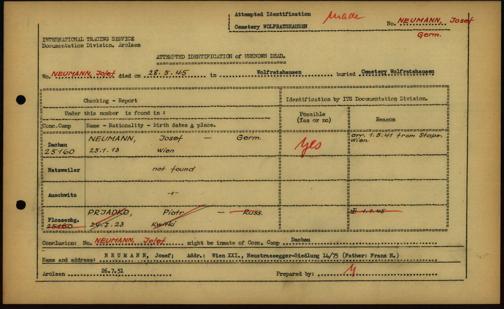 Attempted Identification made No. NEUMANN, Josef
Cemetery WOLFRATSHAUSEN Germ.
INTERNATIONAL TRACING SERVICE
Documentation Division, Arolsen
ATTEMPTED IDENTIFICATION of UNKNOWN DEAD.
No. NEUMANN, Josef died on 28.5.45 in Wolfratshausen buried Cemetery Wolfratshausen
Checking - Report Identification by ITS Documentation Division.
Under this number is found in : Possible Reason
Conc.Camp Name - Nationality - birth dates & place. (Yes or no)
Dachau NEUMANN, Josef - Germ. Yes arr. 1.5.41 from Stapo.
25160 25.1.13 Wien Wien
Natzweiler not found
Auschwitz -"-
Flossenbg. PRJADKO, Piotr - Russ.
25160 23
Conclusion: No. NEUMANN, Josef might be inmate of Conc. Camp Dachau
Name and address: NEUMANN, Josef; Addr.: Wien XXI., Neustrassegger-Siedlung 14/75 (Father: Franz N.)
Arolsen 26.7.51 Prepared by: